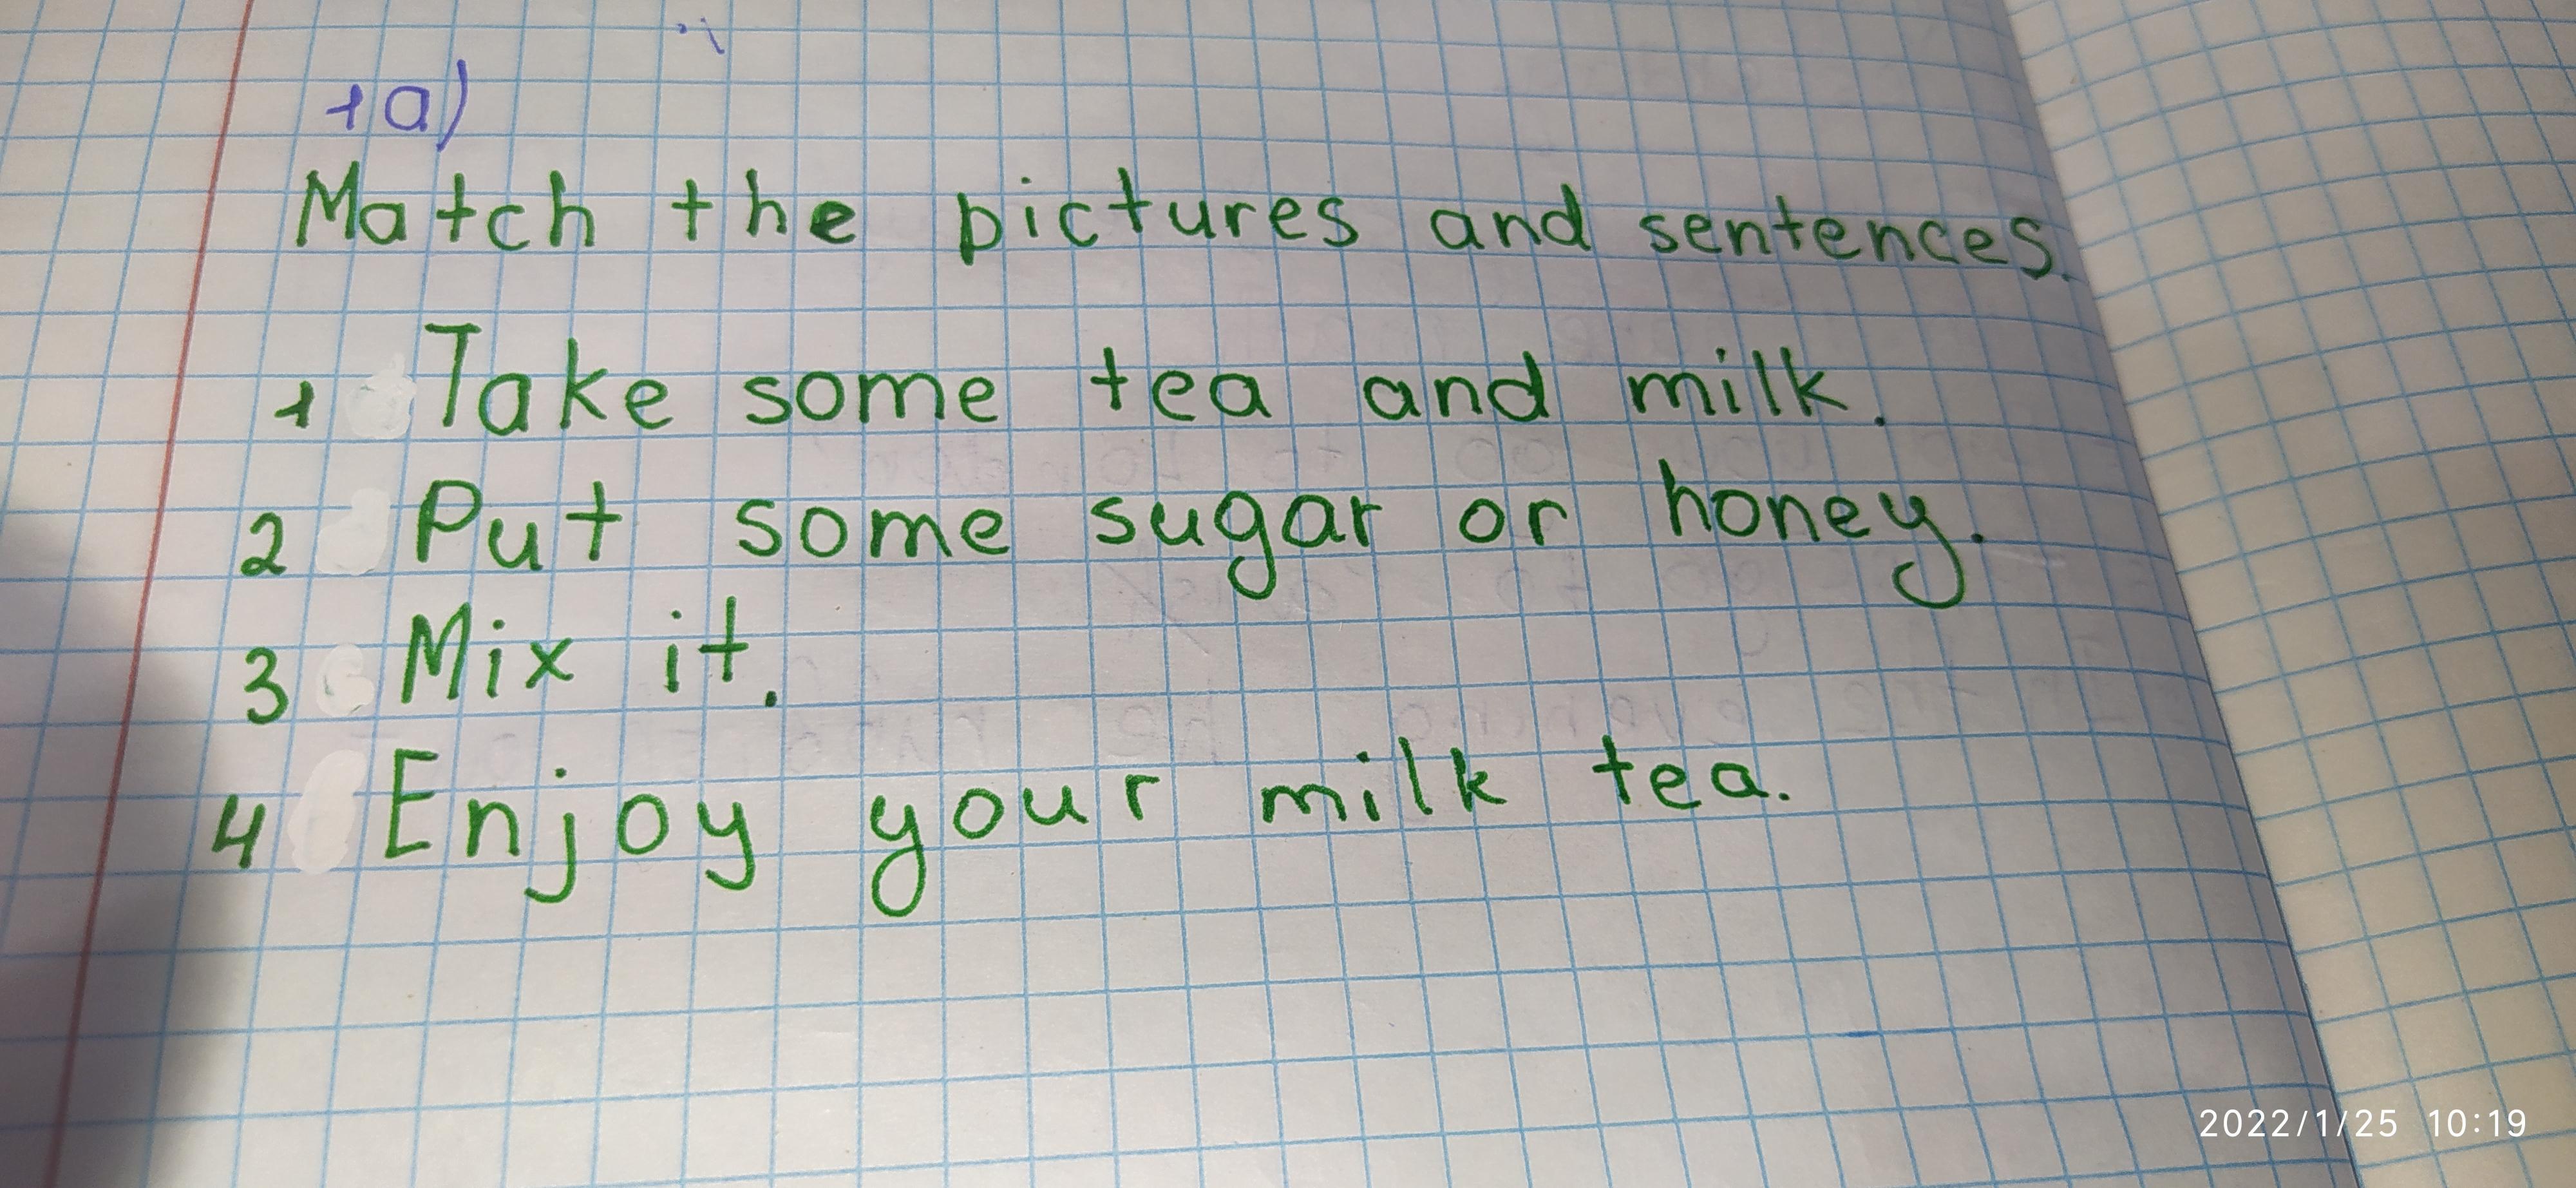 1a)
Match the pictures and sentences.
1 Take some tea and milk.
2 Put some sugar or honey.
3 Mix it.
4 Enjoy your milk tea.
2022/1/25 10:19